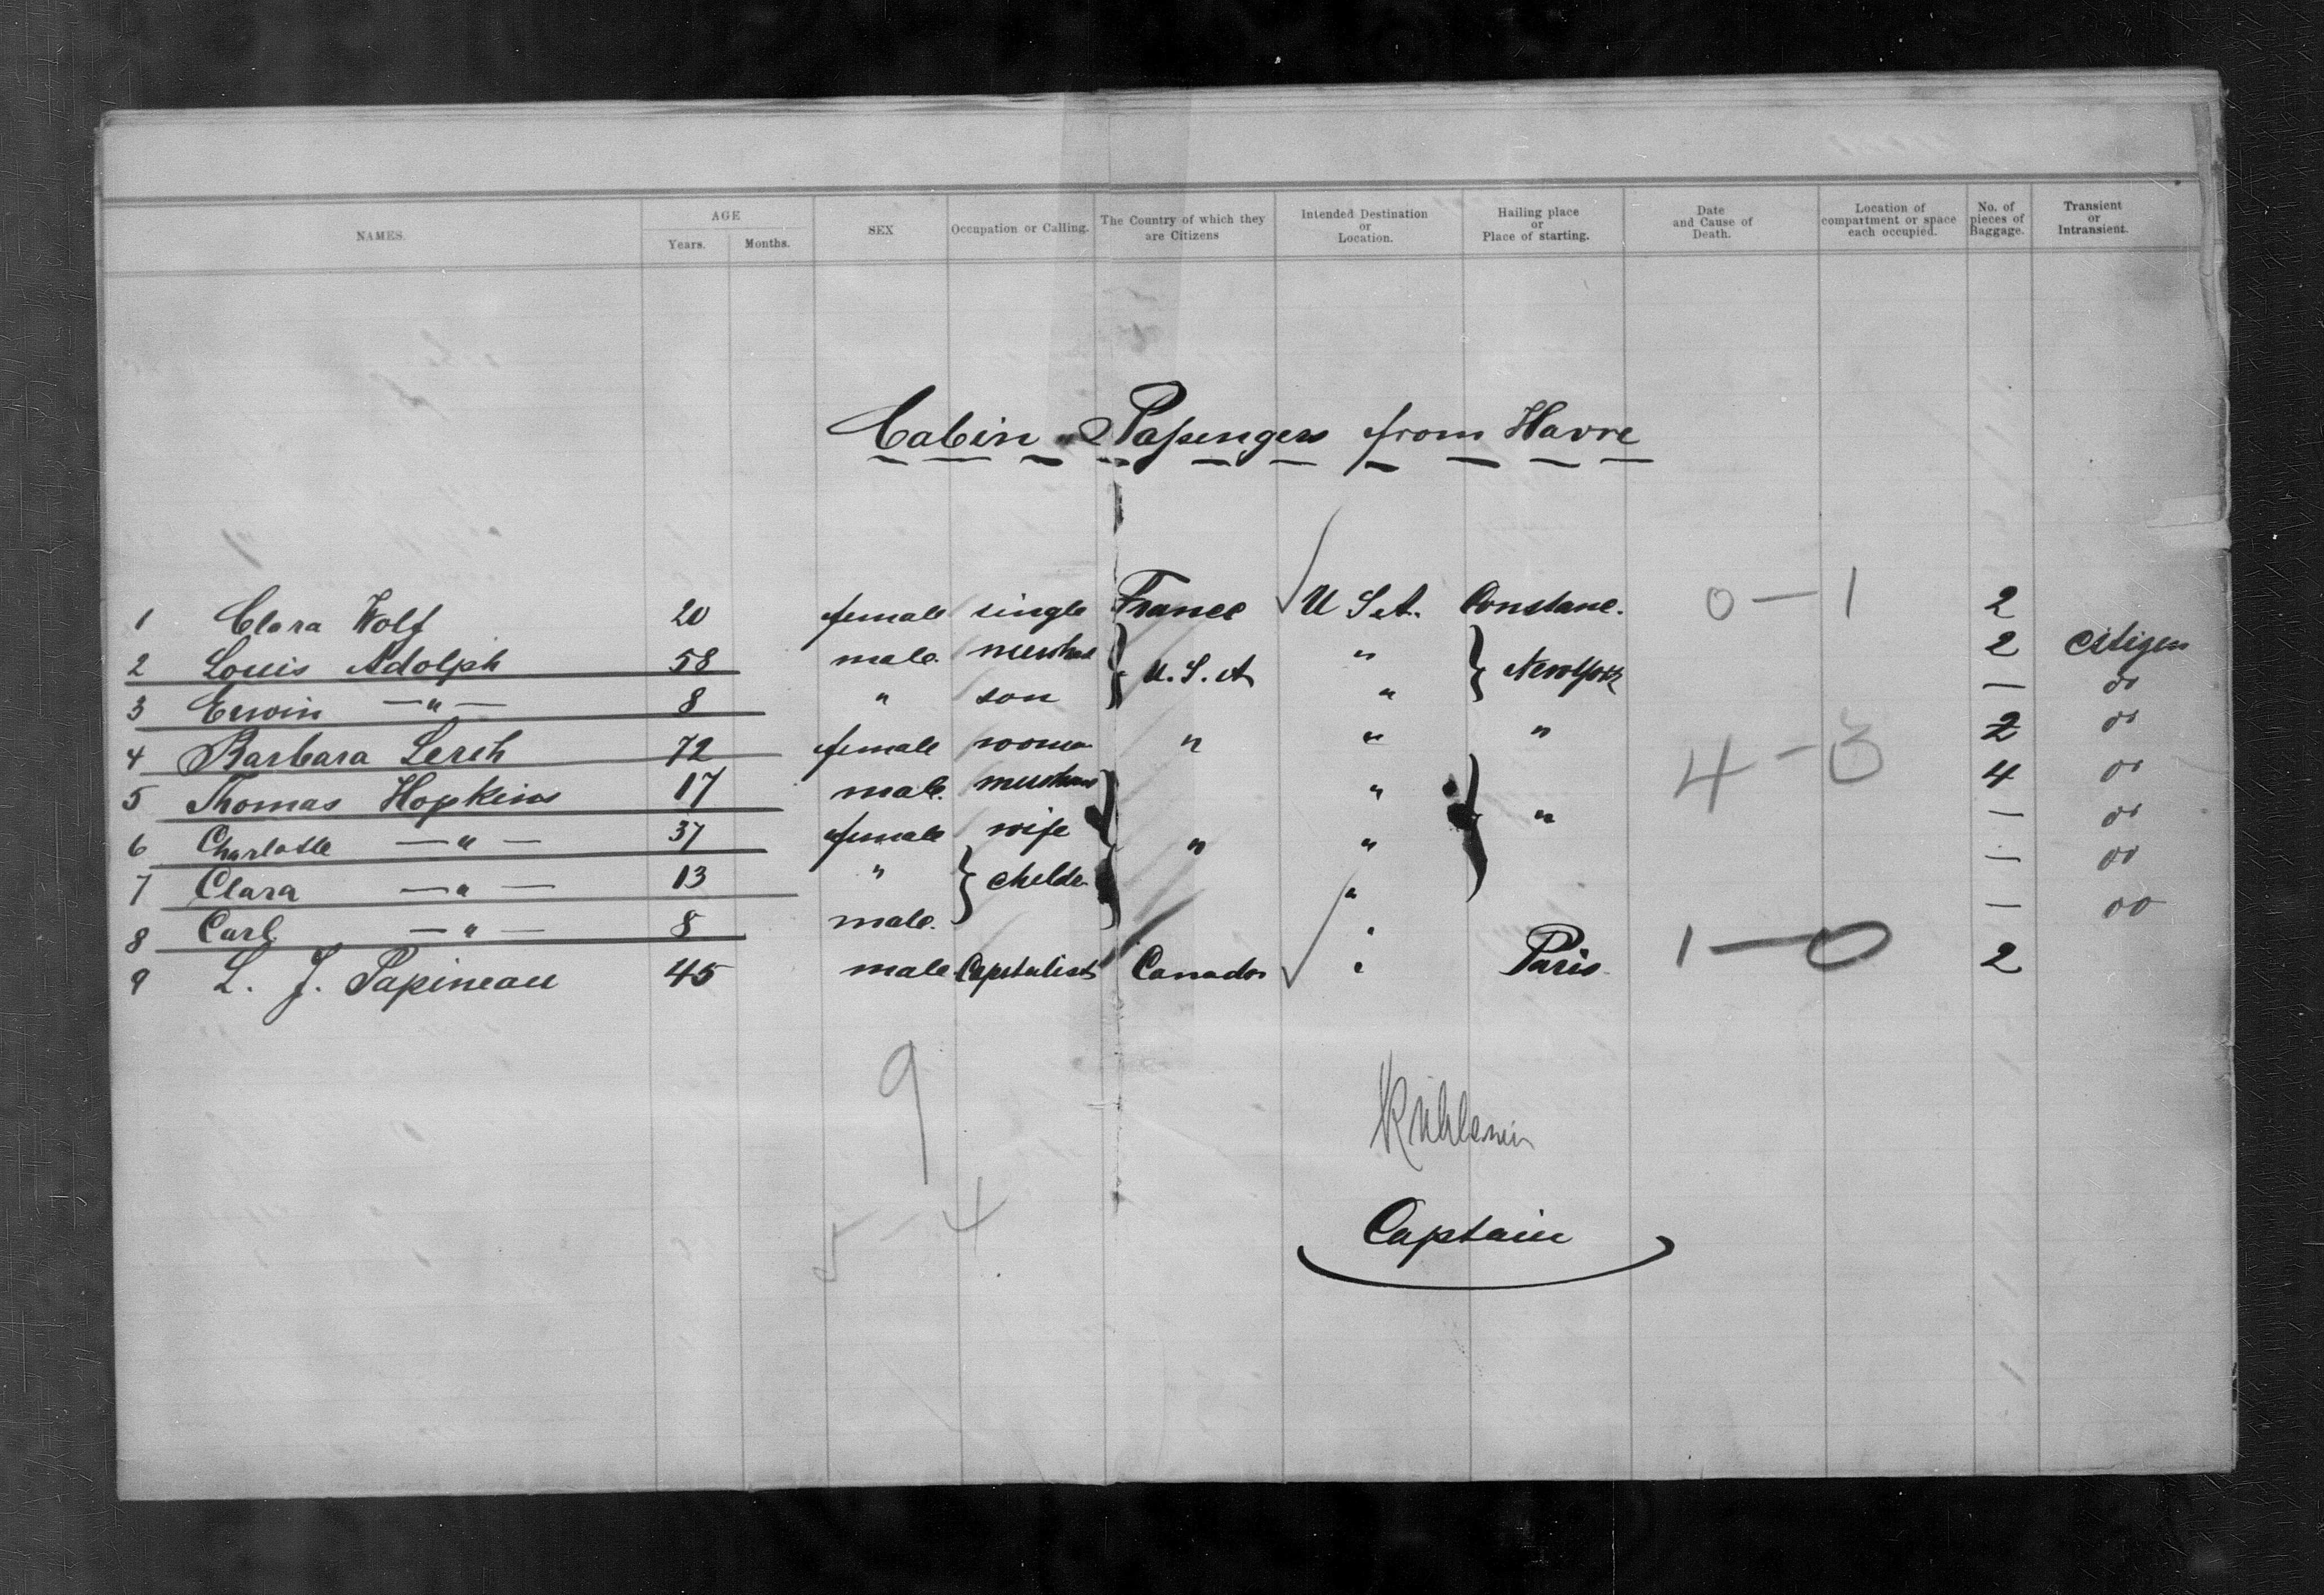 NAMES. AGE Years. Months. SEX Occupation or Calling. The Country of which they are Citizens Intended Destination or Location. Hailing place or Place of starting. Date and Cause of Death. Location of compartment or space each occupied. No. of pieces of Baggage. Transient or Intransient.
Cabin Passengers from Havre
1 Clara Wolf 20 female single France U S A. Constanc. 0 — 1 2
2 Louis Adolph 58 male merchant } U. S. A " } New York 2 Citizen
3 Erwin — " — 8 " son " — do
4 Barbara Lerch 72 female woman " " " 2 do
5 Thomas Hopkins 17 male merchant } " } " 4 - 3 4 do
6 Charlotte — " — 37 female wife " " — do
7 Clara — " — 13 " } childr " — do
8 Carl — " — 8 male " — do
9 L. J. Papineau 45 male Capitalist Canada " Paris 1 — 0 2
9
5 - 4
Captain